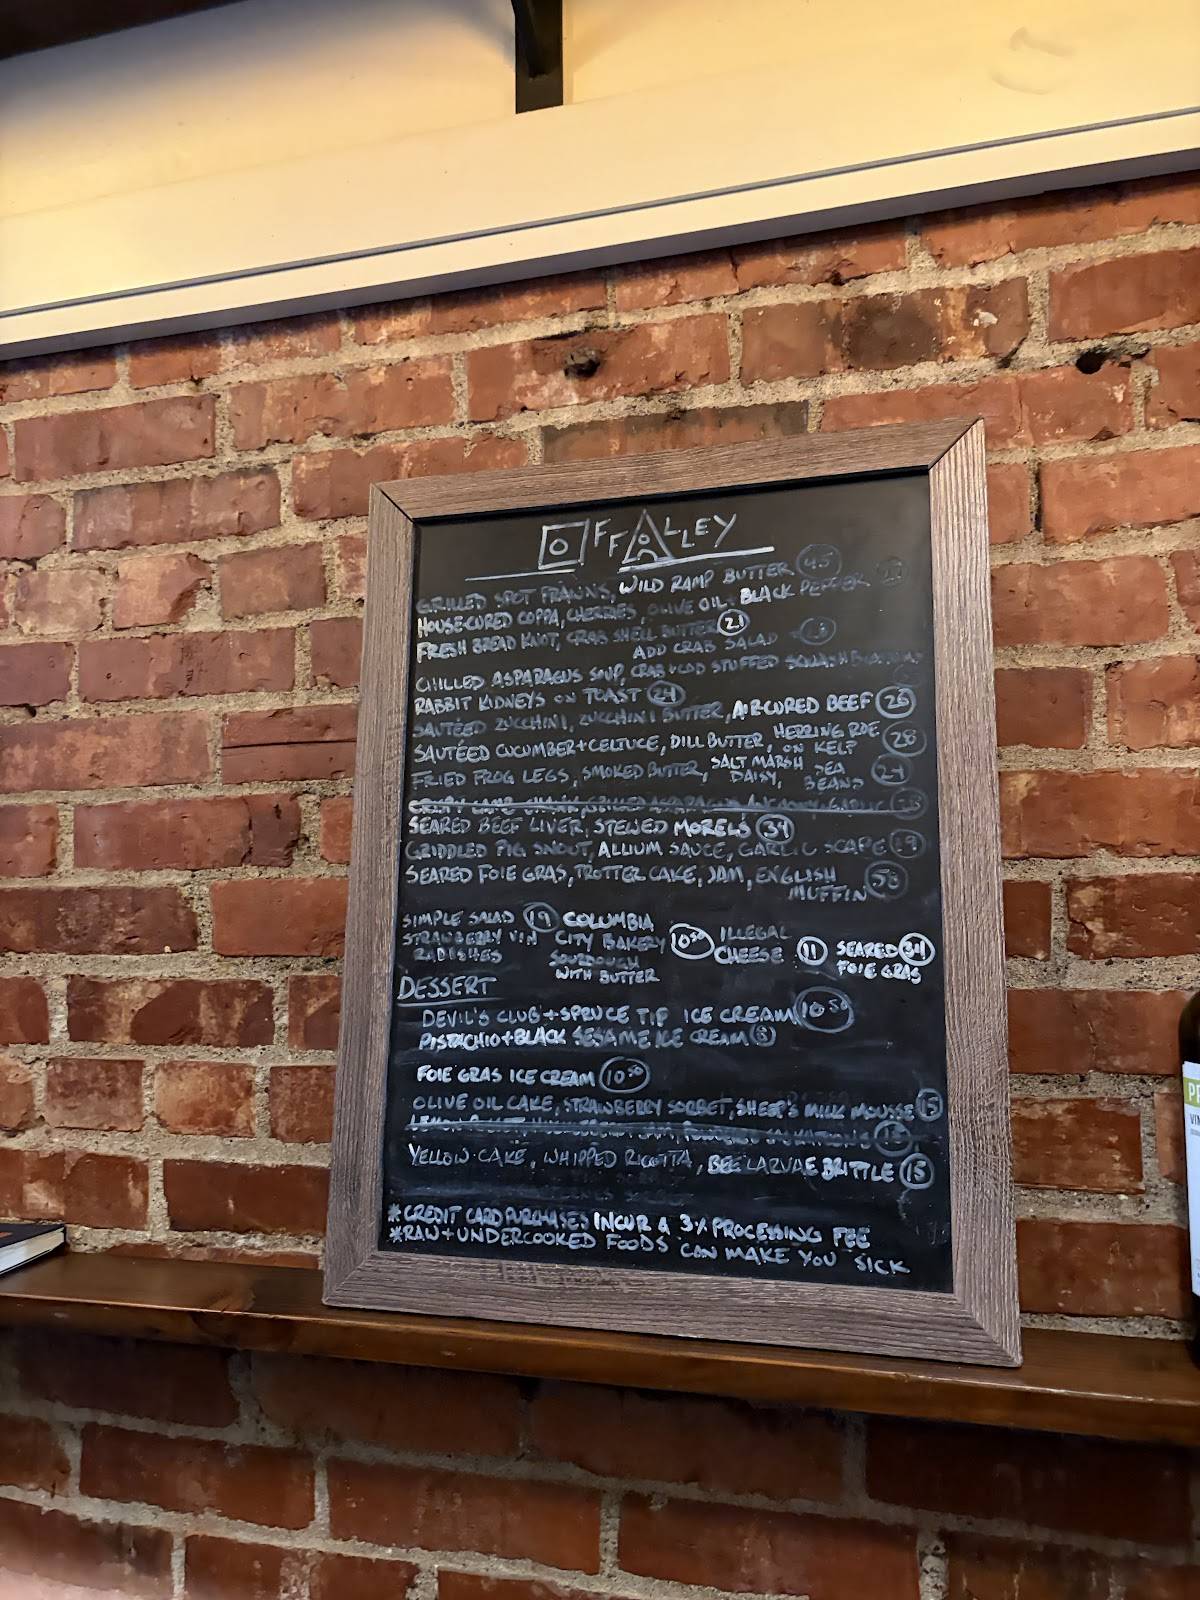 OFFALLEY
GRILLED SPOT PRAWNS, WILD RAMP BUTTER 45
HOUSE CURED COPPA, CHERRIES, OLIVE OIL, BLACK PEPPER
FRESH BREAD KNOT, CRAB SHELL BUTTER 21
ADD CRAB SALAD
CHILLED ASPARAGUS SOUP, CRAB + COD STUFFED SQUASH BLOSSOM
RABBIT KIDNEYS ON TOAST 24
SAUTÉED ZUCCHINI, ZUCCHINI BUTTER, AIR CURED BEEF 26
SAUTÉED CUCUMBER + CELTUCE, DILL BUTTER, HERRING ROE ON KELP 28
FRIED FROG LEGS, SMOKED BUTTER, SALT MARSH DAISY, SEA BEANS 24
SEARED BEEF LIVER, STEWED MORELS 34
GRIDDLED PIG SNOUT, ALLIUM SAUCE, GARLIC SCAPE 19
SEARED FOIE GRAS, TROTTER CAKE, JAM, ENGLISH
MUFFIN 58
SIMPLE SALAD 19
STRAWBERRY VIN
RADISHES
COLUMBIA
CITY BAKERY 10.50
SOURDOUGH
WITH BUTTER
ILLEGAL
CHEESE 11
SEARED 34
FOIE GRAS
DESSERT
DEVIL'S CLUB + SPRUCE TIP ICE CREAM 10.50
PISTACHIO + BLACK SESAME ICE CREAM 8
FOIE GRAS ICE CREAM 10.50
OLIVE OIL CAKE, STRAWBERRY SORBET, SHEEP'S MILK MOUSSE 15
YELLOW CAKE, WHIPPED RICOTTA, BEE LARVAE BRITTLE 15
*CREDIT CARD PURCHASES INCUR A 3% PROCESSING FEE
*RAW + UNDERCOOKED FOODS CAN MAKE YOU SICK